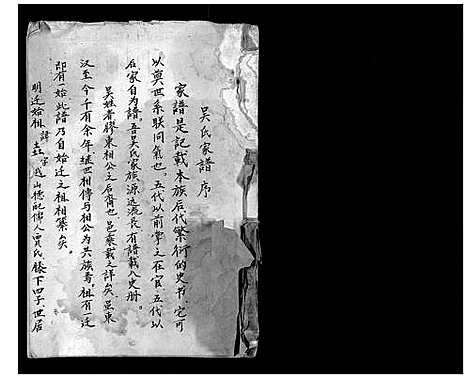 吴氏家譜序
家譜是記载本族后代繁衍的史书,它可
以奠世系联同氣也。五代以前掌之在官,五代以
后家自为譜。吾吴氏家族源远流長,有譜载入史册。
吴姓者膠東相公之后裔也,邑乘载之详矣。
汉至今千有余年,继世相傳与相公为共族者,祖有一迁
即有一始,此譜乃自始迁之祖相纂矣。
明迁始祖諱 字 山德配傳人賈氏膝下四子世居